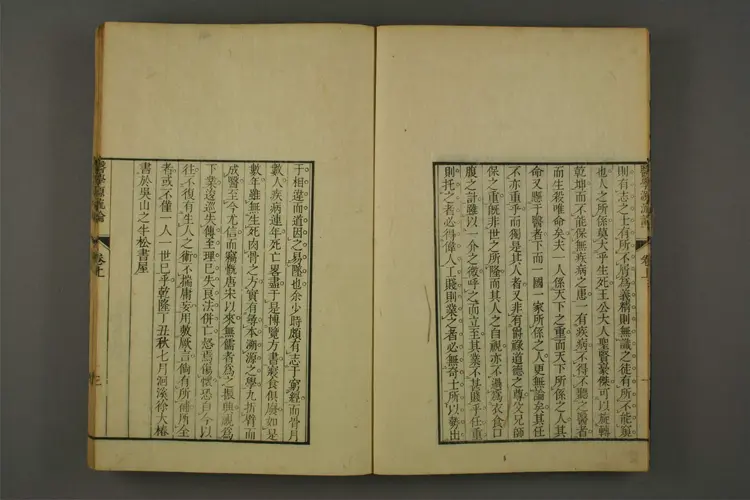 則有志之士有所不屑爲義精則無識之徒有所不能窺
也人之所係莫大乎生死王公大人聖賢豪傑可以旋轉
乾坤而不能保無疾病之患一有疾病不得不聽之醫者
而生殺唯命矣夫一人係天下之重而天下所係之人其
命又懸于醫者下而一國一家所係之人更無論矣其任
不亦重乎而獨是其人者又非有爵祿道德之尊父兄師
保之重既非世之所隆而其人之自視亦不過爲衣食口
腹之計雖以一介之微呼之而立至其業不甚賤乎任重
則托之者必得偉人工賤則業之者必無奇士所以勢出
于相違而道因之易墜也余少時頗有志于窮經而骨月
數人疾病連年死亡畧盡于是博覽方書寢食俱廢如是
數年雖無生死肉骨之方實有尋本溯源之學九折臂而
成醫至今尤信而竊慨唐宋以來無儒者爲之振興視爲
下業逡巡失傳至理已失良法併亡惄焉傷懷恐自今以
往不復有生人之術不揣庸妄用敷厥言倘有所補所全
者或不僅一人一世已乎乾隆丁丑秋七月洄溪徐大椿
書於吳山之半松書屋
醫學源流論
卷上
三